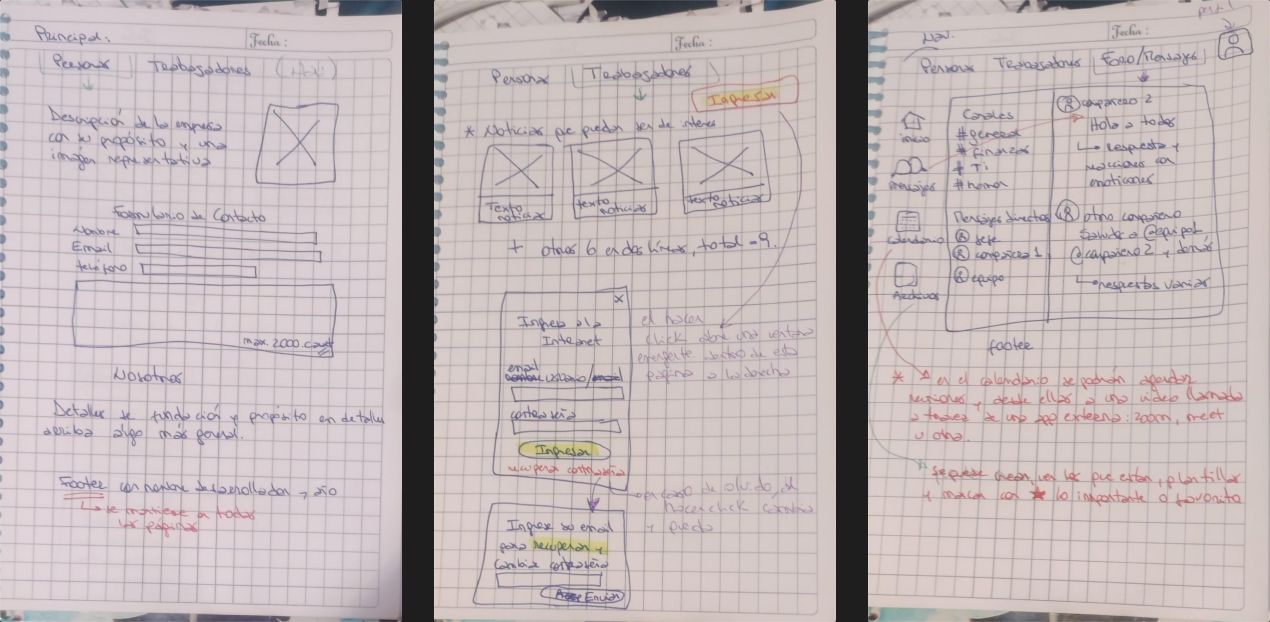 Principal:
Fecha:
Personas Trabajadores (Nav)
Descripción de la empresa
con su propósito y una
imagen representativa
Formulario de Contacto
Nombre
Email
teléfono
max. 2000 caract
Nosotros
Detalles de fundación y propósito en detalles
arriba algo más general.
Footer con nombre desarrollador, año
se mantiene en todas
las páginas
Fecha:
Personas Trabajadores
Ingresar
* Noticias que puedan ser de interés
Texto noticias
texto noticias
texto noticias
+ otras 6 en dos líneas, total = 9.
x
Ingreso a la
Intranet
email
contraseña
Ingresar
recuperar contraseña
al hacer
click abre una ventana
emergente dentro de esta
página a la derecha
en caso de olvido, al
hacer click cambia
y puedo
Ingrese su email
para recuperar y
cambiar contraseña
Enviar
Nav.
Fecha:
Personas Trabajadores Foro/Mensajes
inicio
mensajes
calendario
Archivos
Canales
# general
# finanzas
# TI
# humor
Mensajes directos
jefe
compañero 1
equipo
compañero 2
Hola a todos
respuesta y
reacciones con
emoticones
otro compañero
Saluda a @equipo1,
@compañero2 y demás
respuestas varias
footer
* en el calendario se podrán agendar
reuniones y desde ellas a una video llamada
a través de una app externa: zoom, meet
u otra.
* Se puede crear, ver los que están, plantillas
y marcar con ★ lo importante o favorito